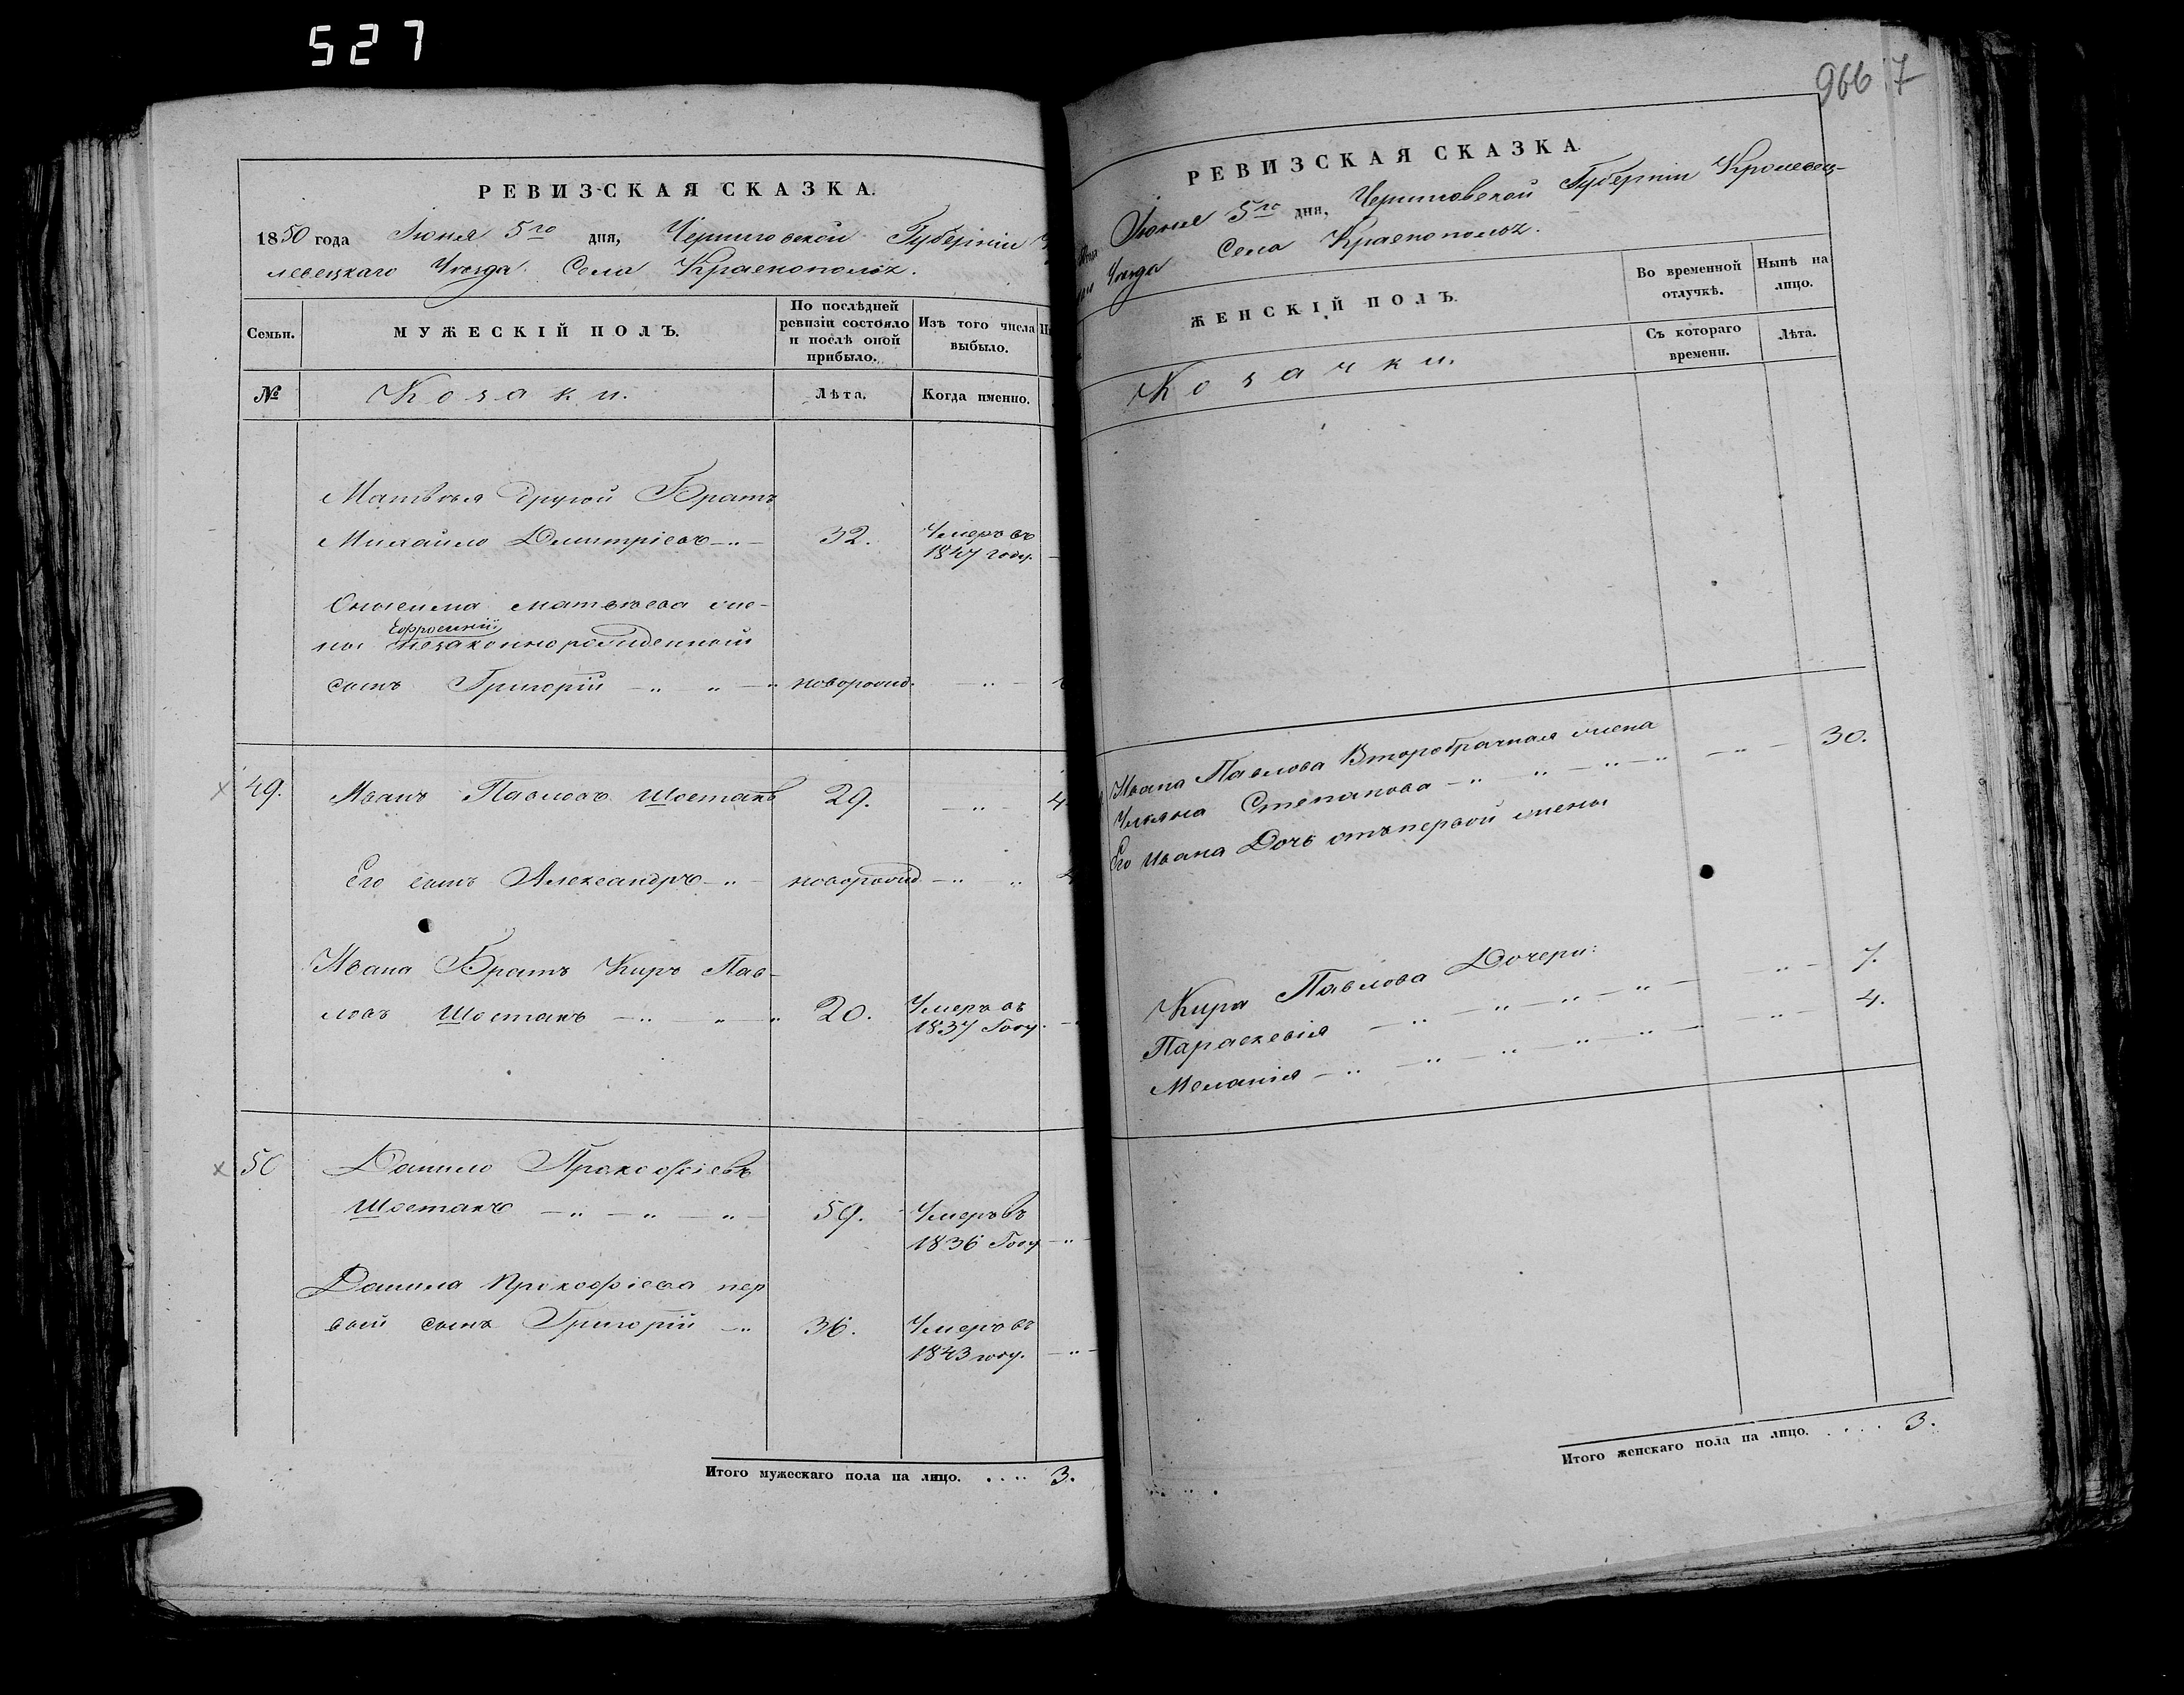 527
РЕВИЗСКАЯ СКАЗКА.
1850 года Іюня 5го дня, Черниговской Губерніи
левецкаго Уезда Села Краснополья.
Семьи.
МУЖЕСКІЙ ПОЛЪ.
По послѣдней
ревизіи состояло
и послѣ оной
прибыло.
Изъ того числа
выбыло.
№
Козаки.
Лѣта.
Когда именно.
Матвѣя другой Братъ
Михайло Димитріевъ 32. Умеръ въ
1847 году.
Матвѣева же-
Ефросиніи
ны незаконнорожденный
сынъ Григорій новорожд.
49. Иванъ Павловъ Шостакъ 29. 4
Его сынъ Александръ новорожд.
Ивана Братъ Киръ Пав-
ловъ Шостакъ 20. Умеръ въ
1837 Году.
50 Данило Прокофіевъ
Шостакъ 59. Умеръ въ
1836 Году
Данила Прокофіева пер
вый сынъ Григорій 36. Умеръ въ
1843 году.
Итого мужескаго пола на лицо. .... 3.
966 7
РЕВИЗСКАЯ СКАЗКА.
Іюня 5го дня, Черниговской Губерніи Кролевец-
Уезда Села Краснополья.
ЖЕНСКІЙ ПОЛЪ.
Во временной
отлучкѣ.
Нынѣ на
лицо.
Съ котораго
времени.
Лѣта.
Козачки.
Ивана Павлова Второбрачная жена
Ульяна Степанова 30.
Его Ивана Дочь отъ первой жены
Кира Павлова Дочери:
Параскевія 7.
Меланія 4.
Итого женскаго пола на лицо. .... 3.